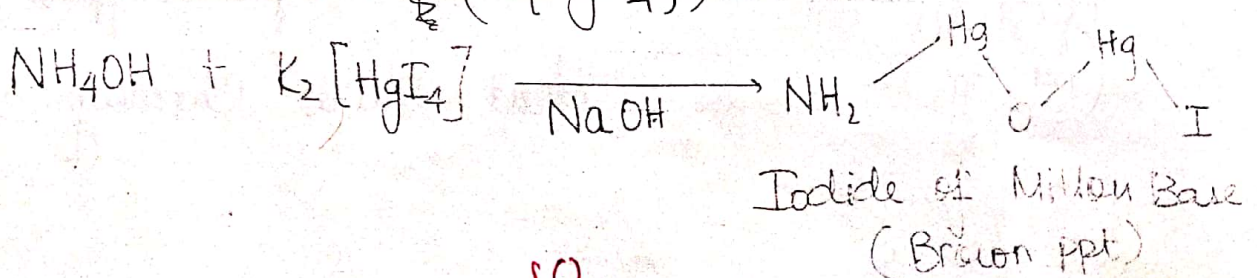 NH₄OH + K₂[HgI₄] → NH₂ Hg O Hg I
NaOH
Iodide of Millon Base
(Brown ppt)